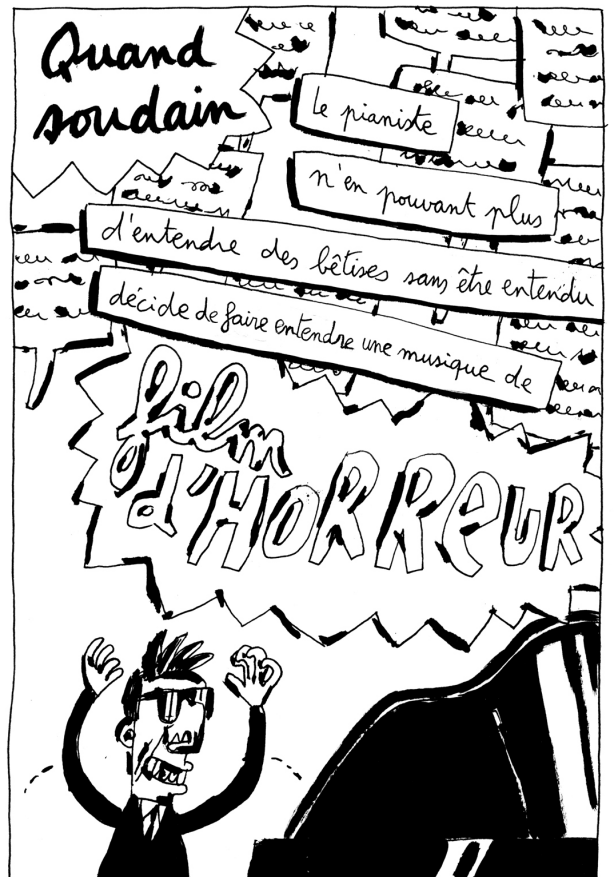 Quand
soudain
le pianiste
n'en pouvant plus
d'entendre des bêtises sans être entendu
décide de faire entendre une musique de
film
d'HORReuR